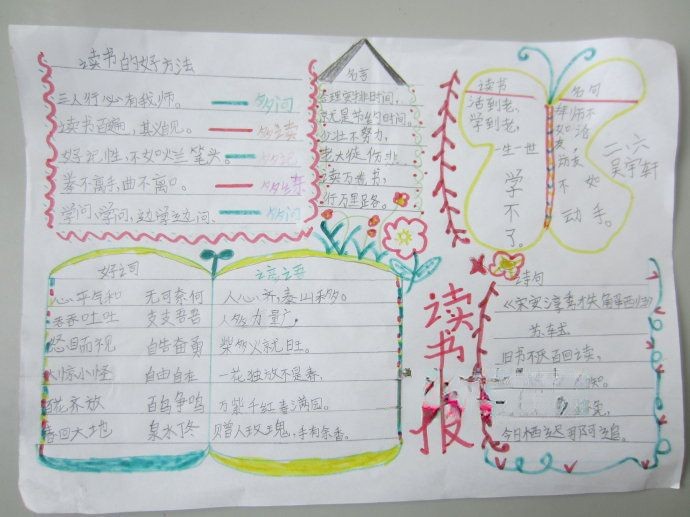 读书的好方法
三人行必有我师。 多问
读书百遍，其义自见。 多读
好记性，不如烂笔头。 多记
拳不离手，曲不离口。 多练
学问，学问，边学边问。 多问
名言
合理安排时间，
就是节约时间。
少壮不努力，
老大徒伤悲
读万卷书，
行万里路。
读书
活到老，
学到老，
一生一世
学
不
了。
名句
拜师不
如访
友，访友
不如
动手。
二.六
吴宇轩
好词
心平气和 无可奈何
吞吞吐吐 支支吾吾
怒目而视 自告奋勇
大惊小怪 自由自在
百花齐放 百鸟争鸣
春回大地 泉水咚
谚语
人心齐，泰山移。
人多力量大，
柴多火焰旺。
一花独放不是春，
万紫千红春满园。
赠人玫瑰，手有余香。
读书报
诗句
苏轼
旧书不厌百回读，
今日栖迟那可追。